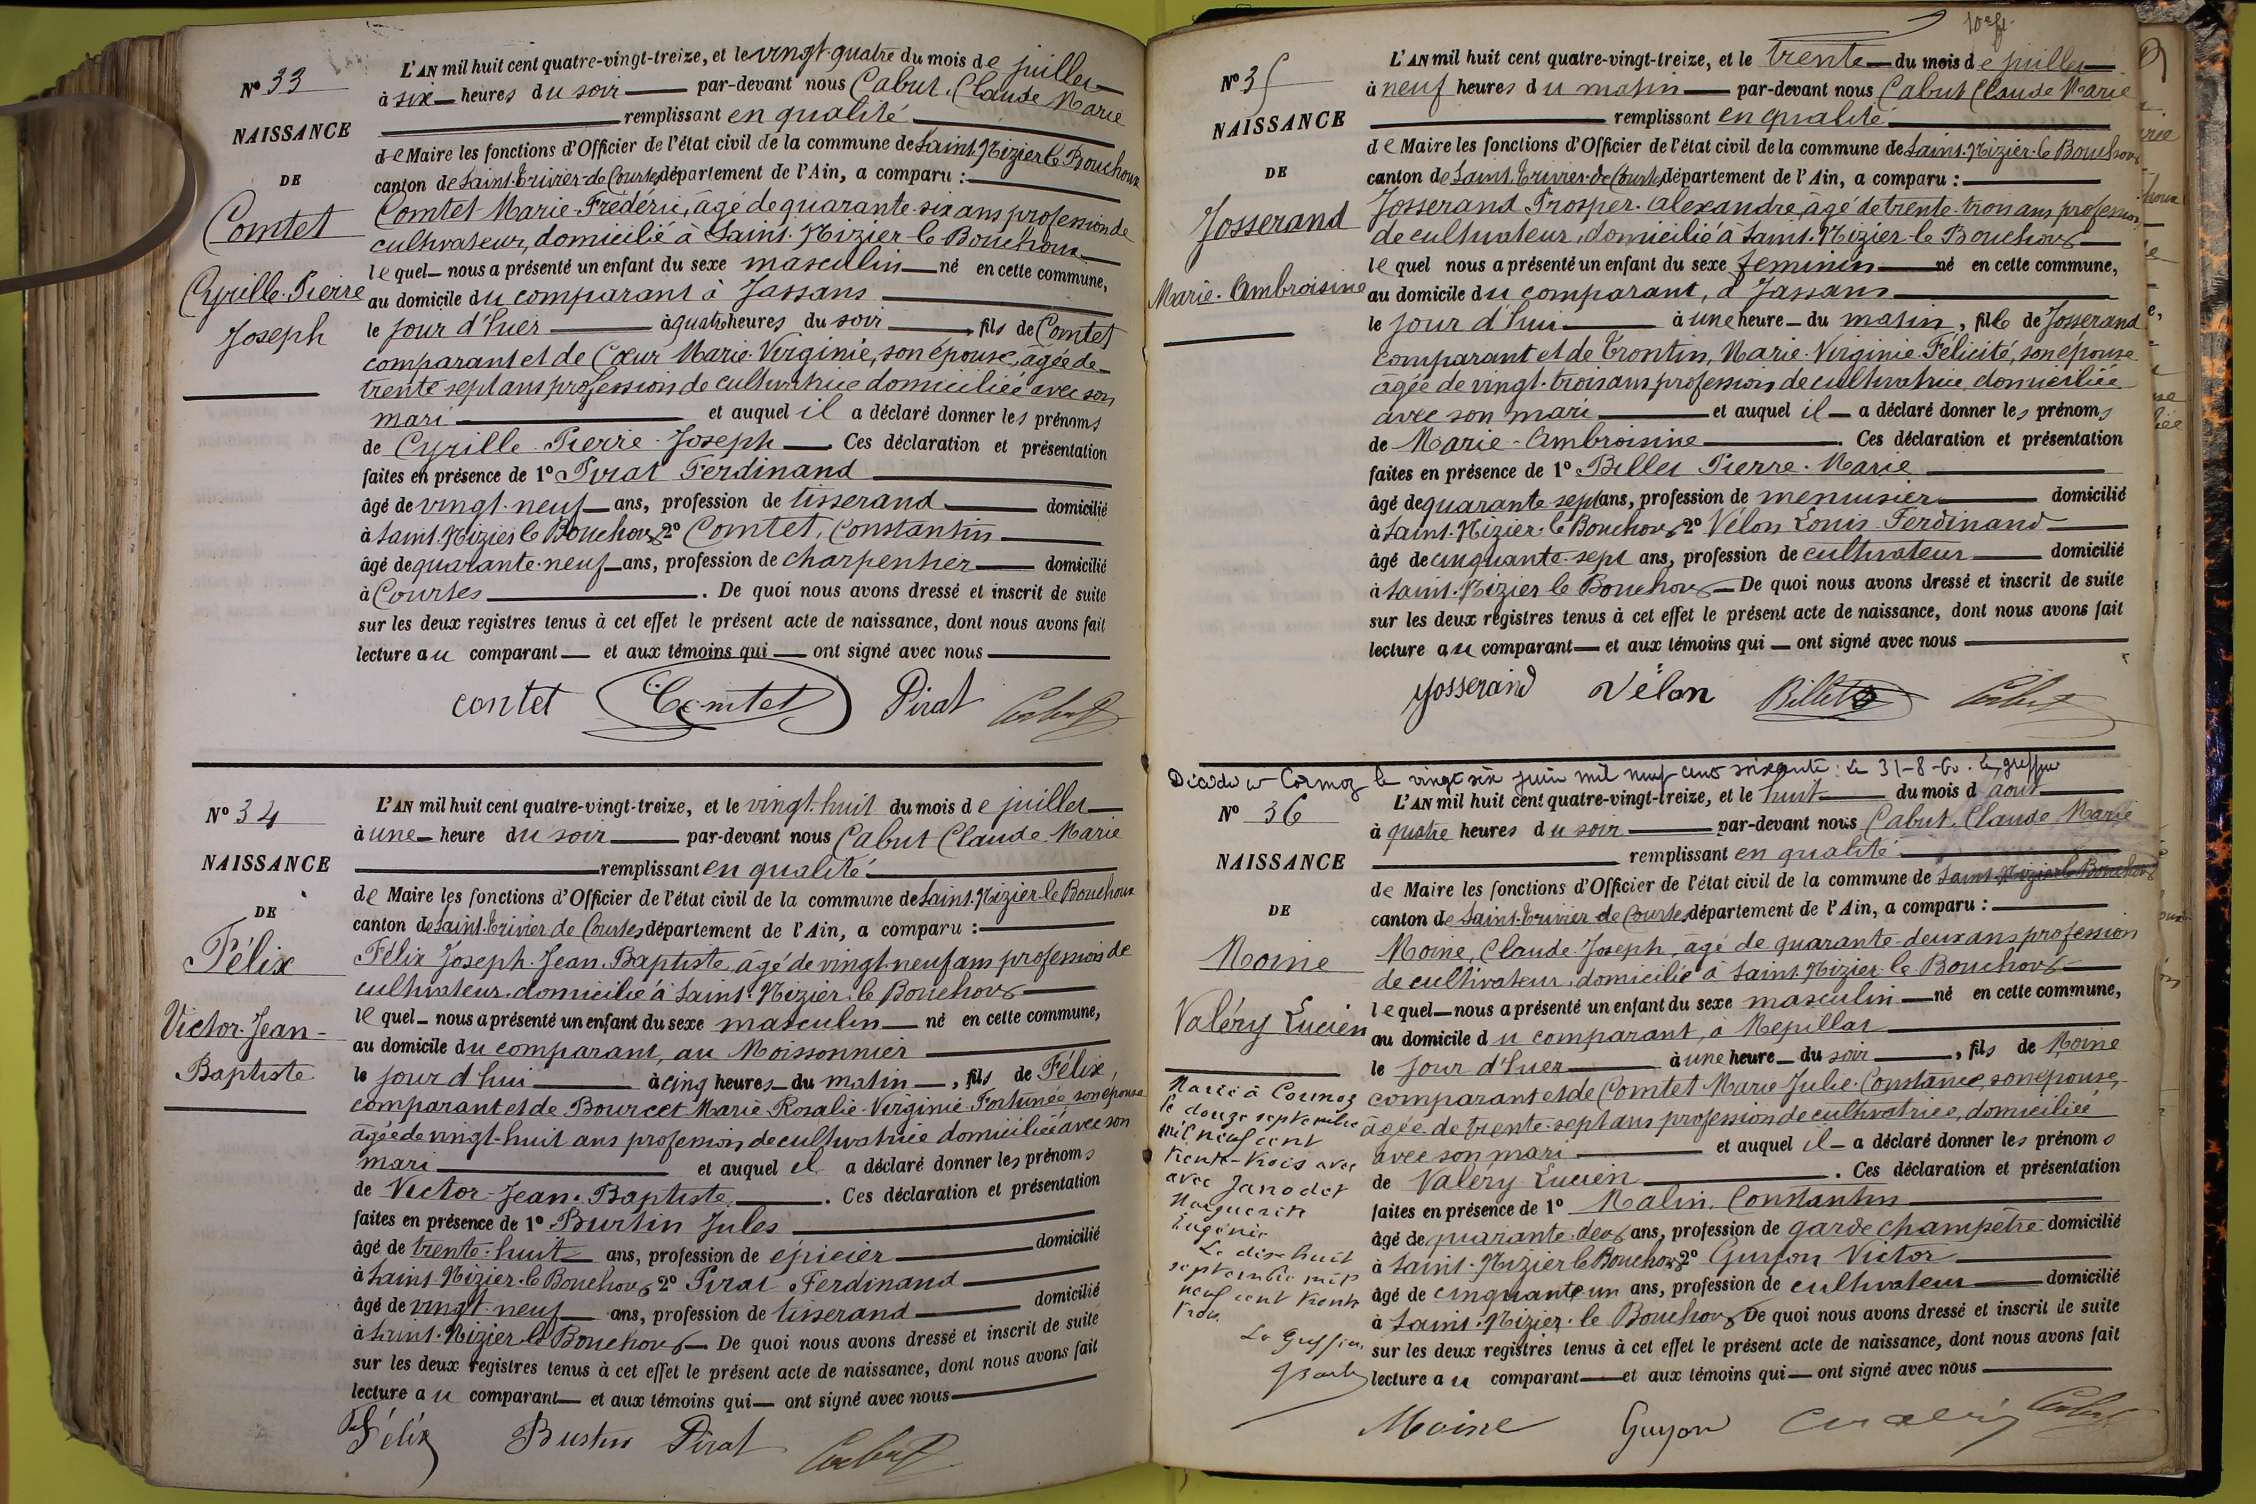 N° 33
NAISSANCE
DE
Comtet
Cyrille-Pierre
Joseph
L'AN mil huit cent quatre-vingt-treize, et le vingt-quatre du mois de juillet
à six heures du soir par-devant nous Cabut, Claude Marie
remplissant en qualité
de Maire les fonctions d'Officier de l'état civil de la commune de Saint-Nizier le Bouchoux
canton de Saint-Trivier-de Courtes département de l'Ain, a comparu :
Comtet Marie-Frédéric, âgé de quarante-six ans profession de
cultivateur, domicilié à Saint-Nizier le Bouchoux
lequel nous a présenté un enfant du sexe masculin né en cette commune,
au domicile du comparant à Jassans
le jour d'hier à quatre heures du soir, fils de Comtet
comparant et de Cœur Marie-Virginie, son épouse, âgée de
trente sept ans profession de cultivatrice domiciliée avec son
mari et auquel il a déclaré donner les prénoms
de Cyrille-Pierre-Joseph. Ces déclaration et présentation
faites en présence de 1° Pirat Ferdinand
âgé de vingt-neuf ans, profession de tisserand domicilié
à Saint-Nizier le Bouchoux 2° Comtet, Constantin
âgé de quarante-neuf ans, profession de charpentier domicilié
à Courtes. De quoi nous avons dressé et inscrit de suite
sur les deux registres tenus à cet effet le présent acte de naissance, dont nous avons fait
lecture au comparant et aux témoins qui ont signé avec nous
contet Comtet Pirat Cabut
N° 34
NAISSANCE
DE
Félix
Victor-Jean-
Baptiste
L'AN mil huit cent quatre-vingt-treize, et le vingt-huit du mois de juillet
à une heure du soir par-devant nous Cabut Claude-Marie
remplissant en qualité
de Maire les fonctions d'Officier de l'état civil de la commune de Saint-Nizier-le Bouchoux
canton de Saint-Trivier de Courtes département de l'Ain, a comparu :
Félix Joseph-Jean-Baptiste, âgé de vingt-neuf ans profession de
cultivateur, domicilié à Saint-Nizier-le Bouchoux
lequel nous a présenté un enfant du sexe masculin né en cette commune,
au domicile du comparant, au Moissonnier
le jour d'hui à cinq heures du matin, fils de Félix,
comparant et de Bourcet Marie-Rosalie-Virginie-Fortunée, son épouse
âgée de vingt-huit ans profession de cultivatrice domiciliée avec son
mari et auquel il a déclaré donner les prénoms
de Victor-Jean-Baptiste. Ces déclaration et présentation
faites en présence de 1° Burtin Jules
âgé de trente-huit ans, profession de épicier domicilié
à Saint-Nizier-le Bouchoux 2° Pirat Ferdinand
âgé de vingt-neuf ans, profession de tisserand domicilié
à Saint-Nizier-le Bouchoux De quoi nous avons dressé et inscrit de suite
sur les deux registres tenus à cet effet le présent acte de naissance, dont nous avons fait
lecture au comparant et aux témoins qui ont signé avec nous
Félix Burtin Pirat Cabut
N° 35
NAISSANCE
DE
Josserand
Marie-Ambroisine
L'AN mil huit cent quatre-vingt-treize, et le trente du mois de juillet
à neuf heures du matin par-devant nous Cabut Claude Marie
remplissant en qualité
de Maire les fonctions d'Officier de l'état civil de la commune de Saint-Nizier-le Bouchoux
canton de Saint-Trivier-de Courtes département de l'Ain, a comparu :
Josserand Prosper-Alexandre, âgé de trente-trois ans profession
de cultivateur, domicilié à Saint-Nizier-le Bouchoux
lequel nous a présenté un enfant du sexe feminin né en cette commune,
au domicile du comparant, à Jassans
le jour d'hui à une heure du matin, fille de Josserand
comparant et de Trontin, Marie-Virginie-Félicité, son épouse
âgée de vingt-trois ans profession de cultivatrice, domiciliée
avec son mari et auquel il a déclaré donner les prénoms
de Marie-Ambroisine. Ces déclaration et présentation
faites en présence de 1° Billet Pierre-Marie
âgé de quarante-sept ans, profession de menuisier domicilié
à Saint-Nizier-le Bouchoux 2° Vélon Louis-Ferdinand
âgé de cinquante-sept ans, profession de cultivateur domicilié
à Saint-Nizier le Bouchoux De quoi nous avons dressé et inscrit de suite
sur les deux registres tenus à cet effet le présent acte de naissance, dont nous avons fait
lecture au comparant et aux témoins qui ont signé avec nous
Josserand Vélon Billet Cabut
Décédé à Cormoz le vingt six juin mil neuf cent soixante : le 31-8-60. le greffier
N° 36
NAISSANCE
DE
Moine
Valéry Lucien
Marié à Cormoz
le douze septembre
mil neuf cent
trente-trois avec
avec Janodet
Marguerite
Eugénie
Le dix huit
septembre mil
neuf cent trente
trois
Le Greffier,
L'AN mil huit cent quatre-vingt-treize, et le huit du mois d'août
à quatre heures du soir par-devant nous Cabut, Claude Marie
remplissant en qualité
de Maire les fonctions d'Officier de l'état civil de la commune de Saint-Nizier le Bouchoux
canton de Saint-Trivier de Courtes département de l'Ain, a comparu :
Moine, Claude-Joseph, âgé de quarante-deux ans profession
de cultivateur, domicilié à Saint-Nizier-le Bouchoux
lequel nous a présenté un enfant du sexe masculin né en cette commune,
au domicile du comparant, à Mepillat
le jour d'hier à une heure du soir, fils de Moine
comparant et de Comtet Marie Julie-Constance, son épouse,
âgée de trente-sept ans profession de cultivatrice, domiciliée
avec son mari et auquel il a déclaré donner les prénoms
de Valéry Lucien. Ces déclaration et présentation
faites en présence de 1° Malin, Constantin
âgé de quarante-deux ans, profession de garde champêtre domicilié
à Saint-Nizier le Bouchoux 2° Guyon Victor
âgé de cinquante-un ans, profession de cultivateur domicilié
à Saint-Nizier-le Bouchoux De quoi nous avons dressé et inscrit de suite
sur les deux registres tenus à cet effet le présent acte de naissance, dont nous avons fait
lecture au comparant et aux témoins qui ont signé avec nous
Moine Guyon Cabut